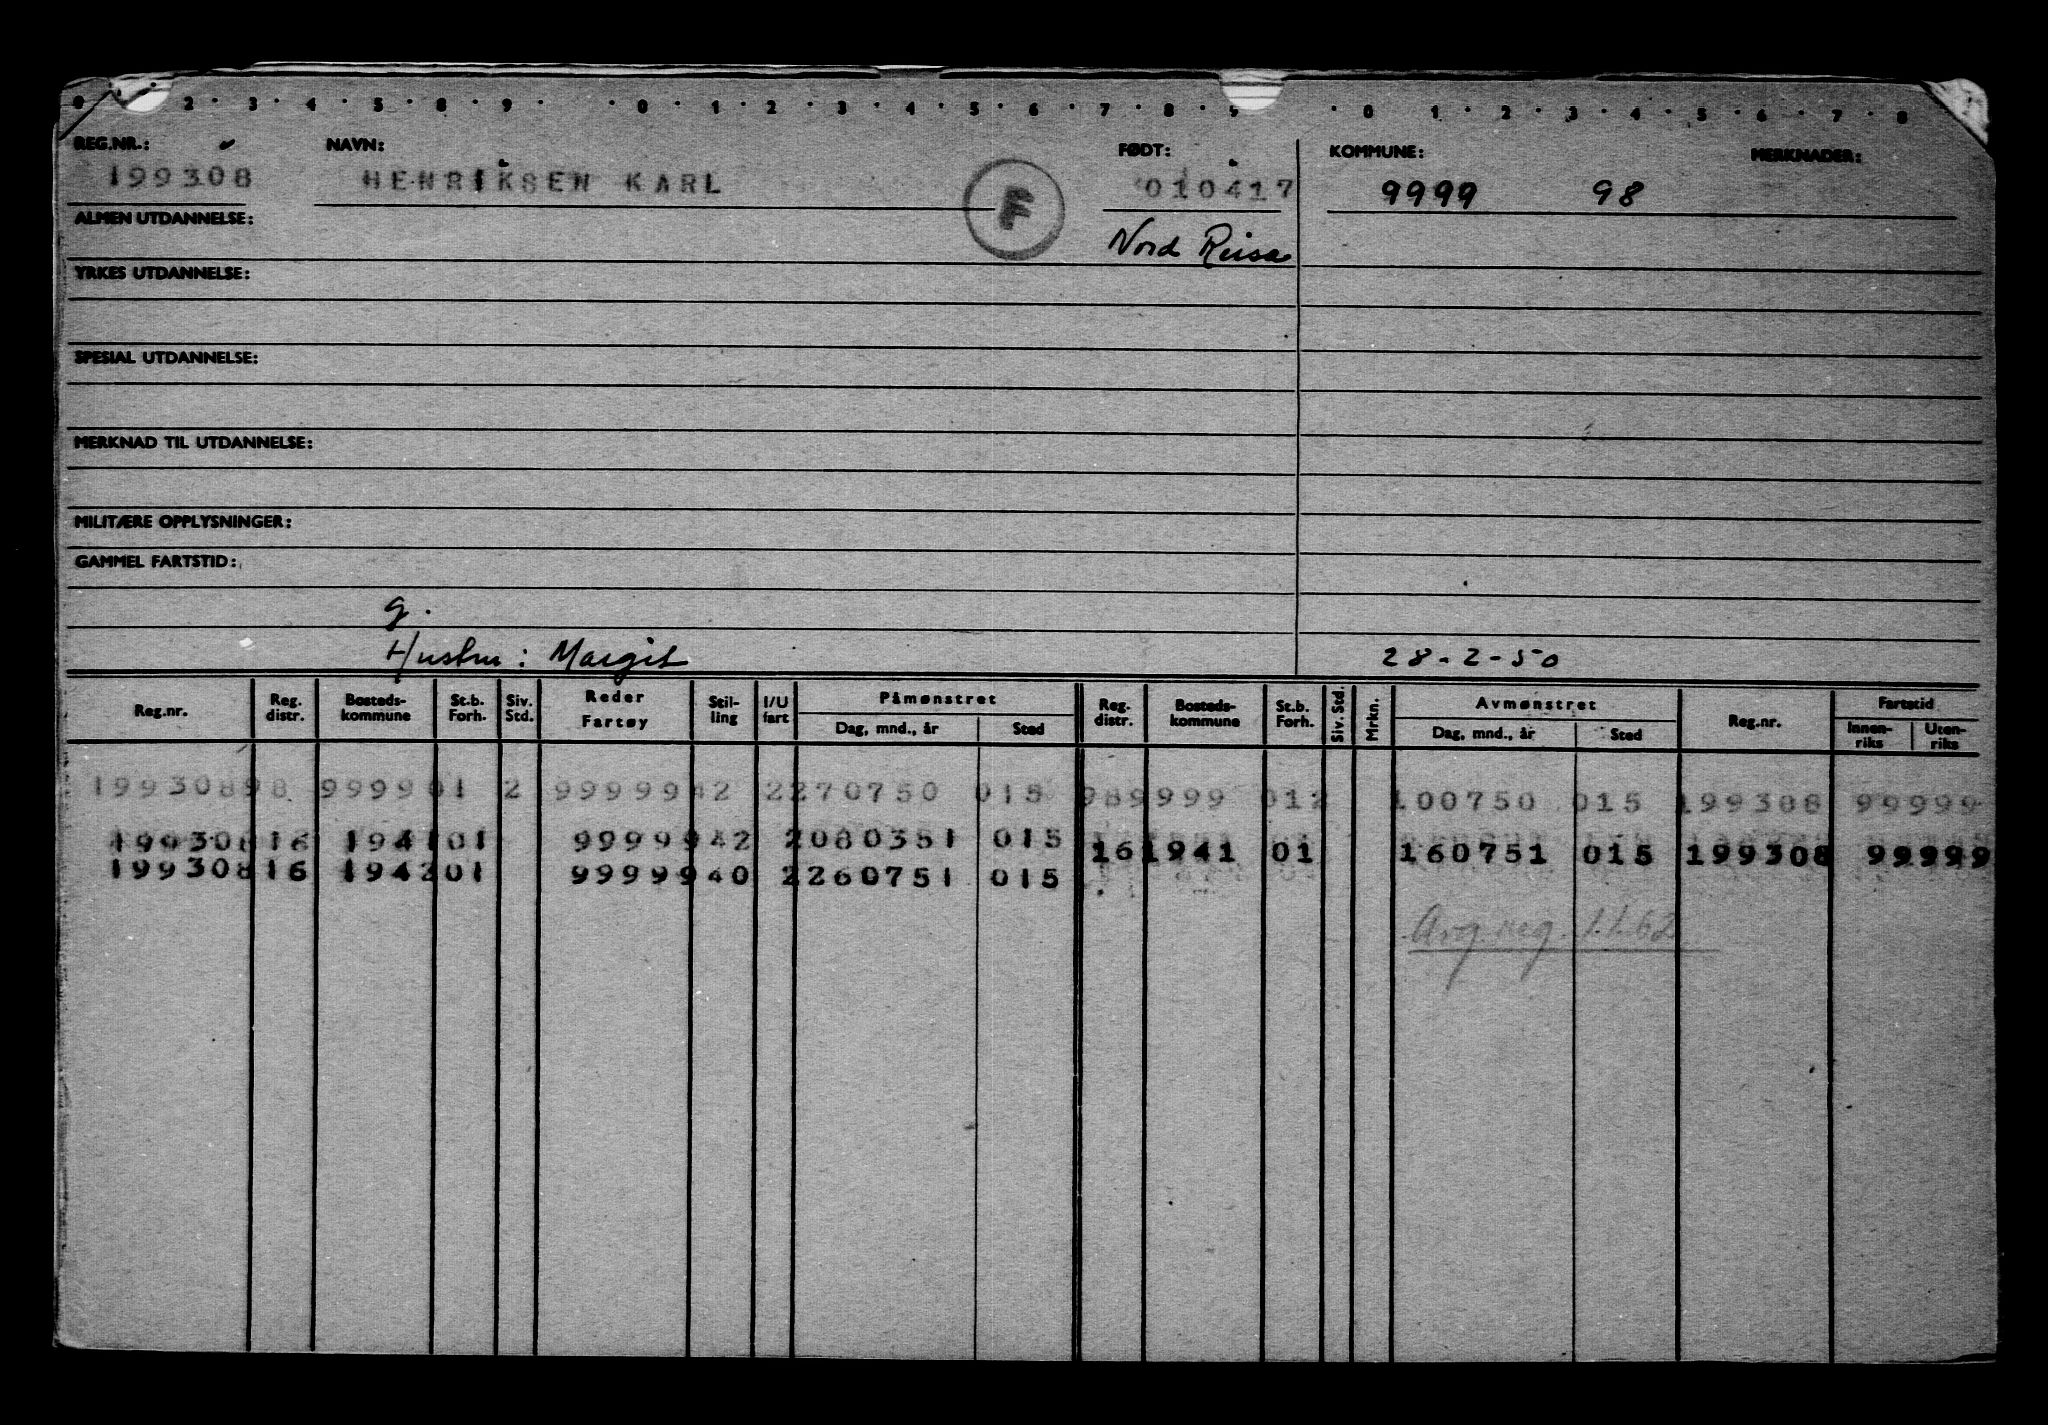 2 . 3 . 4 . 5 . 8 . 9 . . 0 . 1 . 2 . 3 . 4 . 5 . 6 . 7 . 8 . 9 . 0 . 1 . 2 . 3 . 4 . 5 . 6 . 7 . 8
REG.NR.: NAVN: FØDT: KOMMUNE: MERKNADER:
199308 HENRIKSEN KARL F 010417 9999 98
ALMEN UTDANNELSE: Nord Reisa
YRKES UTDANNELSE:
SPESIAL UTDANNELSE:
MERKNAD TIL UTDANNELSE:
MILITÆRE OPPLYSNINGER:
GAMMEL FARTSTID:
g.
Hustru: Margit 28-2-50
Reg.nr. Reg. distr. Bosteds-kommune St.b. Forh. Siv. Std. Reder Fartøy Stil-ling I/U fart Påmønstret Dag, mnd., år Sted Reg. distr. Bosteds-kommune St.b. Forh. Siv. Std. Mrkn. Avmønstret Dag, mnd., år Sted Reg.nr. Fartstid Innen-riks Uten-riks
19930898 999901 2 9999942 2270750 015 989999 012 100750 015 199308 99999
19930816 194101 9999942 2080351 015 161941 01 160751 015 199308 99999
19930816 194201 9999940 2260751 015
Avg. reg. 1.1.62